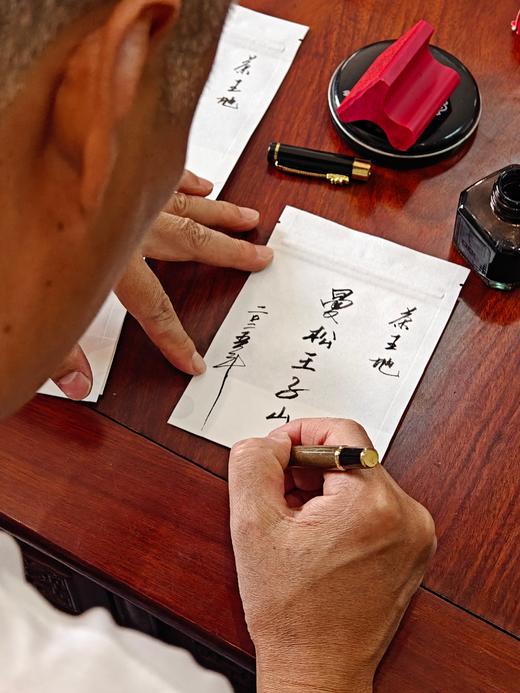 茶王地
茶王地
曼松王子山
二〇二五年